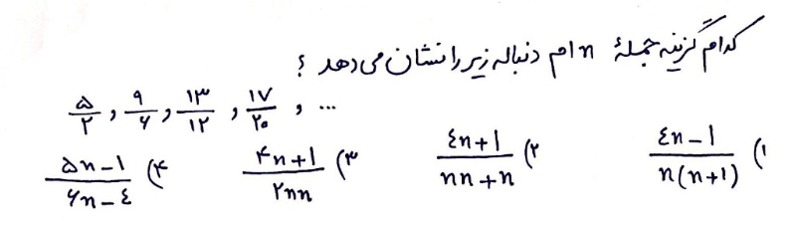 کدام گزینه جملهٔ nام دنباله زیر را نشان می‌دهد ؟
۵/۲ , ۹/۶ , ۱۳/۱۲ , ۱۷/۲۰ , ...
۱) (٤n-۱)/(n(n+۱))
۲) (٤n+۱)/(nn+n)
۳) (۴n+۱)/(۲nn)
۴) (۵n-۱)/(۶n-٤)